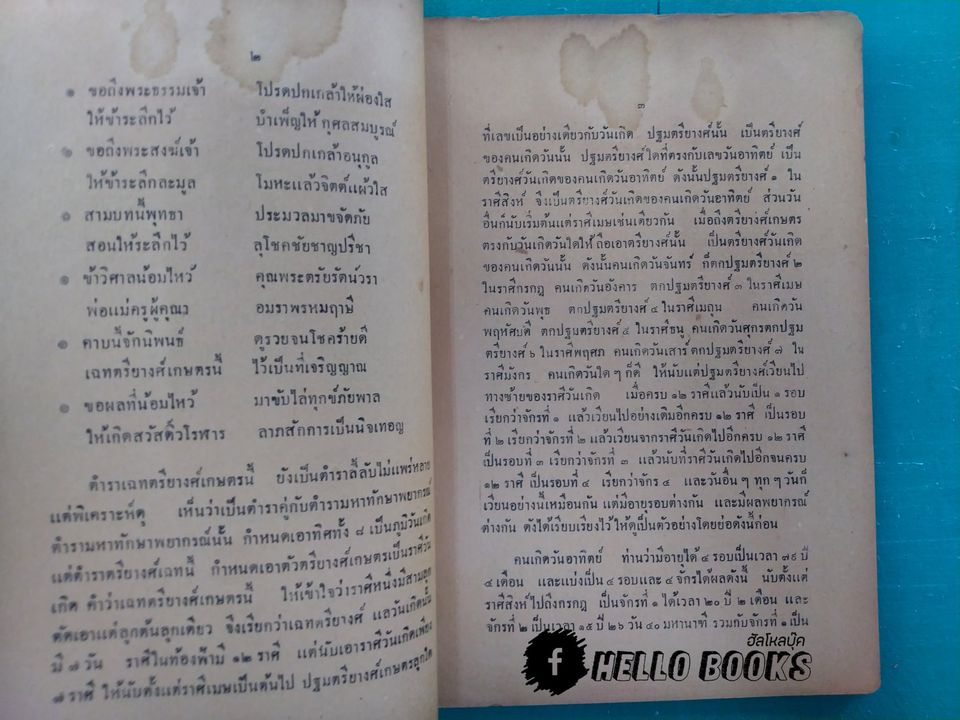 ๒
๑ ขอถึงพระธรรมเจ้า โปรดปกเกล้าให้ผ่องใส
ให้ข้าระลึกไว้ บำเพ็ญให้กุศลสมบูรณ์
๑ ขอถึงพระสงฆ์เจ้า โปรดปกเกล้าอนุกูล
ให้ข้าระลึกละมูล โมหะแล้วจิตต์แผ้วใส
๑ สามบทนี้พุทธา ประมวลมาขจัดภัย
สอนให้ระลึกไว้ ลุโชคชัยชาญปรีชา
๑ ข้าวิศาลน้อมไหว้ คุณพระตรัยรัตน์วรา
พ่อแม่ครูผู้คุณา อมราพรหมฤาษี
๑ คาบนี้จักนิพนธ์ ดูรวยจนโชคร้ายดี
เฉทตรียางศ์เกษตรนี้ ไว้เป็นที่เจริญญาณ
๑ ขอผลที่น้อมไหว้ มาขับไล่ทุกข์ภัยพาล
ให้เกิดสวัสดิ์วโรฬาร ลาภสักการเป็นนิจเทอญ
ตำราเฉทตรียางศ์เกษตรนี้ ยังเป็นตำราลี้ลับไม่แพร่หลาย
แต่พิเคราะห์ดู เห็นว่าเป็นตำราคู่กับตำรามหาทักษาพยากรณ์
ตำรามหาทักษาพยากรณ์นั้น กำหนดเอาทิศทั้ง ๘ เป็นภูมิวันเกิด
แต่ตำราตรียางศ์เฉทนี้ กำหนดเอาตัวตรียางศ์เกษตรเป็นราศีวัน
เกิด คำว่าเฉทตรียางศ์เกษตรนี้ ให้เข้าใจว่าราศีหนึ่งมีสามลูก
ตัดเอาแต่ลูกต้นลูกเดียว จึงเรียกว่าเฉทตรียางศ์ แลวันเกิดนั้น
มี ๗ วัน ราศีในท้องฟ้ามี ๑๒ ราศี แต่นับเอาราศีวันเกิดเพียง
๗ ราศี ให้นับตั้งแต่ราศีเมษเป็นต้นไป ปฐมตรียางศ์เกษตรลูกใด
๓
ที่เลขเป็นอย่างเดียวกับวันเกิด ปฐมตรียางศ์นั้น เป็นตรียางศ์
ของคนเกิดวันนั้น ปฐมตรียางศ์ใดที่ตรงกับเลขวันอาทิตย์ เป็น
ตรียางศ์วันเกิดของคนเกิดวันอาทิตย์ ดังนั้นปฐมตรียางศ์ ๑ ใน
ราศีสิงห์ จึงเป็นตรียางศ์วันเกิดของคนเกิดวันอาทิตย์ ส่วนวัน
อื่นก็นับเริ่มต้นแต่ราศีเมษเช่นเดียวกัน เมื่อถึงตรียางศ์เกษตร
ตรงกับวันเกิดวันใดให้ถือเอาตรียางศ์นั้น เป็นตรียางศ์วันเกิด
ของคนเกิดวันนั้น ดังนั้นคนเกิดวันจันทร์ ก็ตกปฐมตรียางศ์ ๒
ในราศีกรกฎ คนเกิดวันอังคาร ตกปฐมตรียางศ์ ๓ ในราศีเมษ
คนเกิดวันพุธ ตกปฐมตรียางศ์ ๔ ในราศีเมถุน คนเกิดวัน
พฤหัศบดี ตกปฐมตรียางศ์ ๕ ในราศีธนู คนเกิดวันศุกรตกปฐม
ตรียางศ์ ๖ ในราศีพฤศภ คนเกิดวันเสาร์ ตกปฐมตรียางศ์ ๗ ใน
ราศีมังกร คนเกิดวันใด ๆ ก็ดี ให้นับแต่ปฐมตรียางศ์เวียนไป
ทางซ้ายของราศีวันเกิด เมื่อครบ ๑๒ ราศีแล้วนับเป็น ๑ รอบ
เรียกว่าจักร์ที่ ๑ แล้วเวียนไปอย่างเดิมอีกครบ ๑๒ ราศี เป็นรอบ
ที่ ๒ เรียกว่าจักร์ที่ ๒ แล้วเวียนจากราศีวันเกิดไปอีกครบ ๑๒ ราศี
เป็นรอบที่ ๓ เรียกว่าจักร์ที่ ๓ แล้วนับที่ราศีวันเกิดไปอีกจนครบ
๑๒ ราศี เป็นรอบที่ ๔ เรียกว่าจักร์ ๔ และวันอื่น ๆ ทุก ๆ วันก็
เวียนอย่างนี้เหมือนกัน แต่มีอายุรอบต่างกัน และมีผลพยากรณ์
ต่างกัน ดังได้เรียบเรียงไว้ ให้ดูเป็นตัวอย่างโดยย่อดังนี้ก่อน
คนเกิดวันอาทิตย์ ท่านว่ามีอายุได้ ๔ รอบเป็นเวลา ๗๙ ปี
๔ เดือน และแบ่งเป็น ๔ รอบและ ๔ จักร์ได้ผลดังนี้ นับตั้งแต่
ราศีสิงห์ไปถึงกรกฎ เป็นจักร์ที่ ๑ ได้เวลา ๒๐ ปี ๒ เดือน และ
จักร์ที่ ๒ เป็นเวลา ๑๕ ปี ๒๖ วัน ๔๐ มหานาที รวมกับจักร์ที่ ๑ เป็น
ฮัลโหลบุ๊ค
f HELLO BOOKS